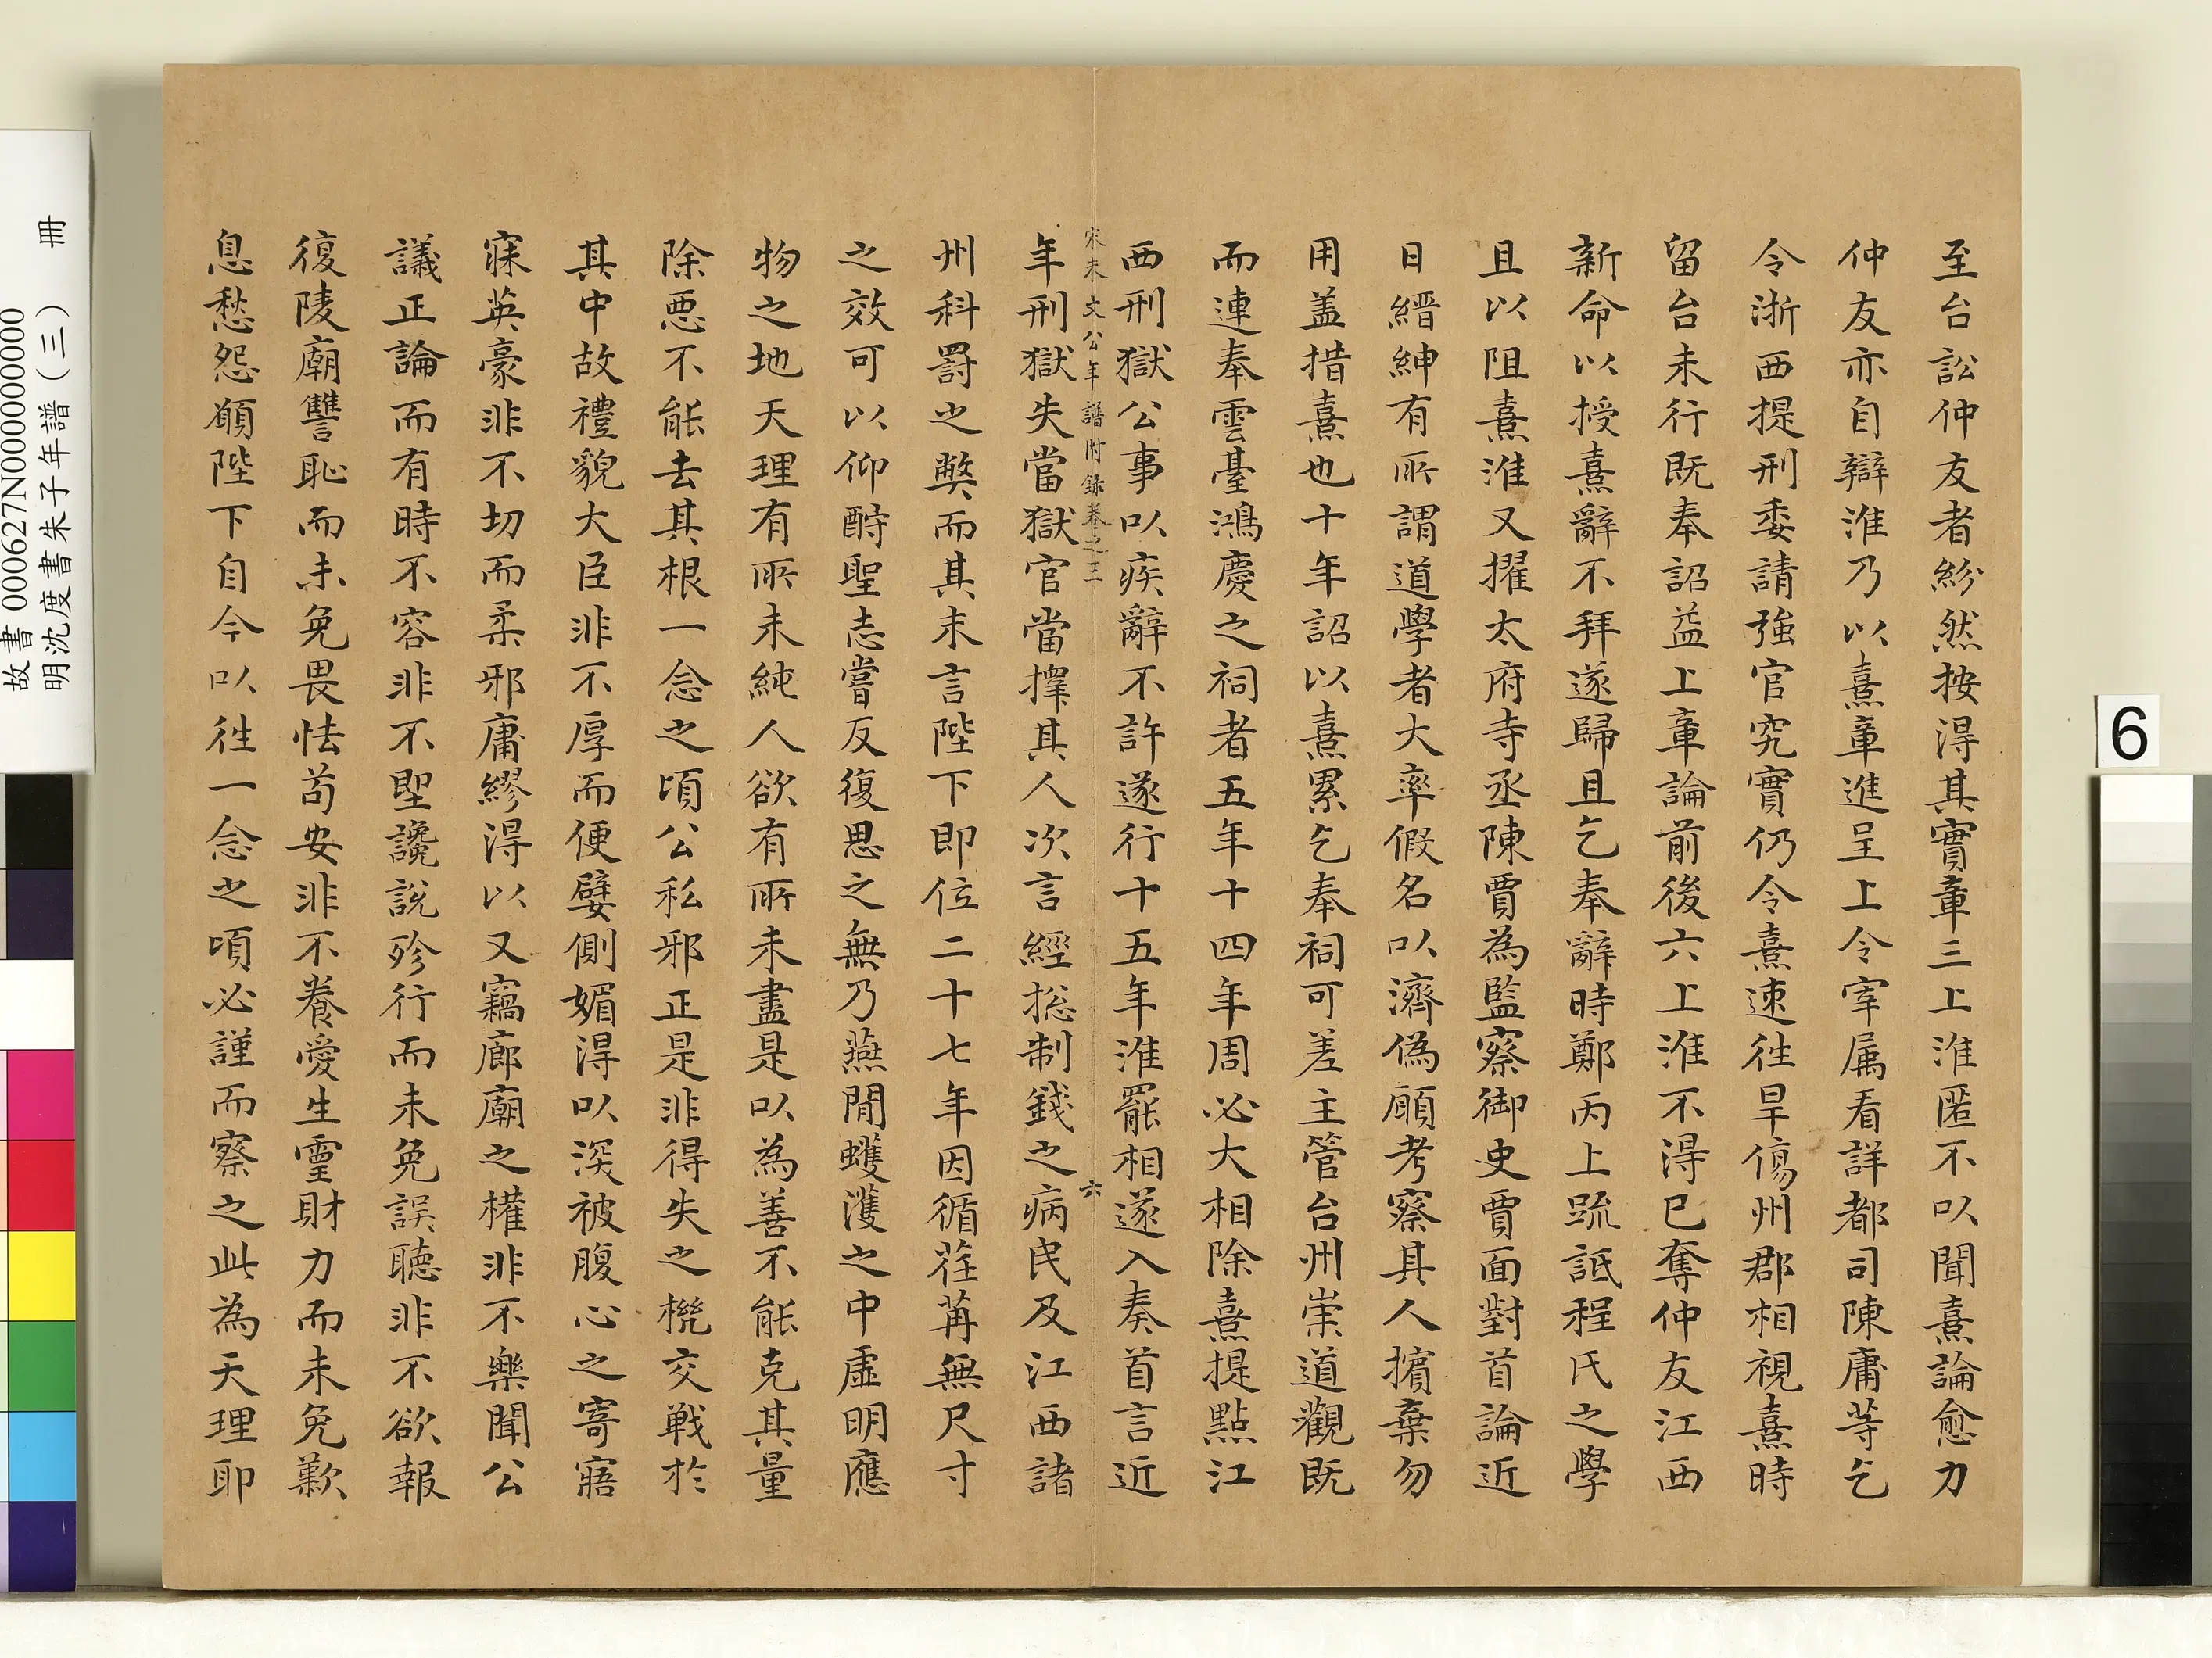 至台訟仲友者紛然按得其實章三上淮匿不以聞熹論愈力
仲友亦自辯淮乃以熹章進呈上令宰属看詳都司陳庸等乞
令浙西提刑委請強官究實仍令熹速徃旱傷州郡相視熹時
留台未行既奉詔益上章論前後六上淮不得已奪仲友江西
新命以授熹辭不拜遂歸且乞奉辭時鄭丙上疏詆程氏之學
且以阻熹淮又擢太府寺丞陳賈為監察御史賈面對首論近
日縉紳有所謂道學者大率假名以濟偽願考察其人擯棄勿
用盖措熹也十年詔以熹累乞奉祠可差主管台州崇道觀既
而連奉雲臺鴻慶之祠者五年十四年周必大相除熹提點江
西刑獄公事以疾辭不許遂行十五年淮罷相遂入奏首言近
宋朱文公年譜附錄卷之三
六
年刑獄失當獄官當擇其人次言經捴制錢之病民及江西諸
州科罰之弊而其末言陛下即位二十七年因循荏苒無尺寸
之效可以仰酧聖志嘗反復思之無乃燕閒蠖濩之中虛明應
物之地天理有所未純人欲有所未盡是以為善不能克其量
除悪不能去其根一念之頃公私邪正是非得失之機交戦於
其中故禮貌大臣非不厚而便嬖側媚淂以深被腹心之寄寤
寐英豪非不切而柔邪庸繆淂以又竊廊廟之權非不樂聞公
議正論而有時不容非不聖讒說殄行而未免誤聽非不欲報
復陵廟讐恥而未免畏怯苟安非不養愛生靈財力而未免歎
息愁怨願陛下自今以徃一念之頃必謹而察之此為天理耶
故書 000627N000000000
明沈度書朱子年譜(三) 冊
6